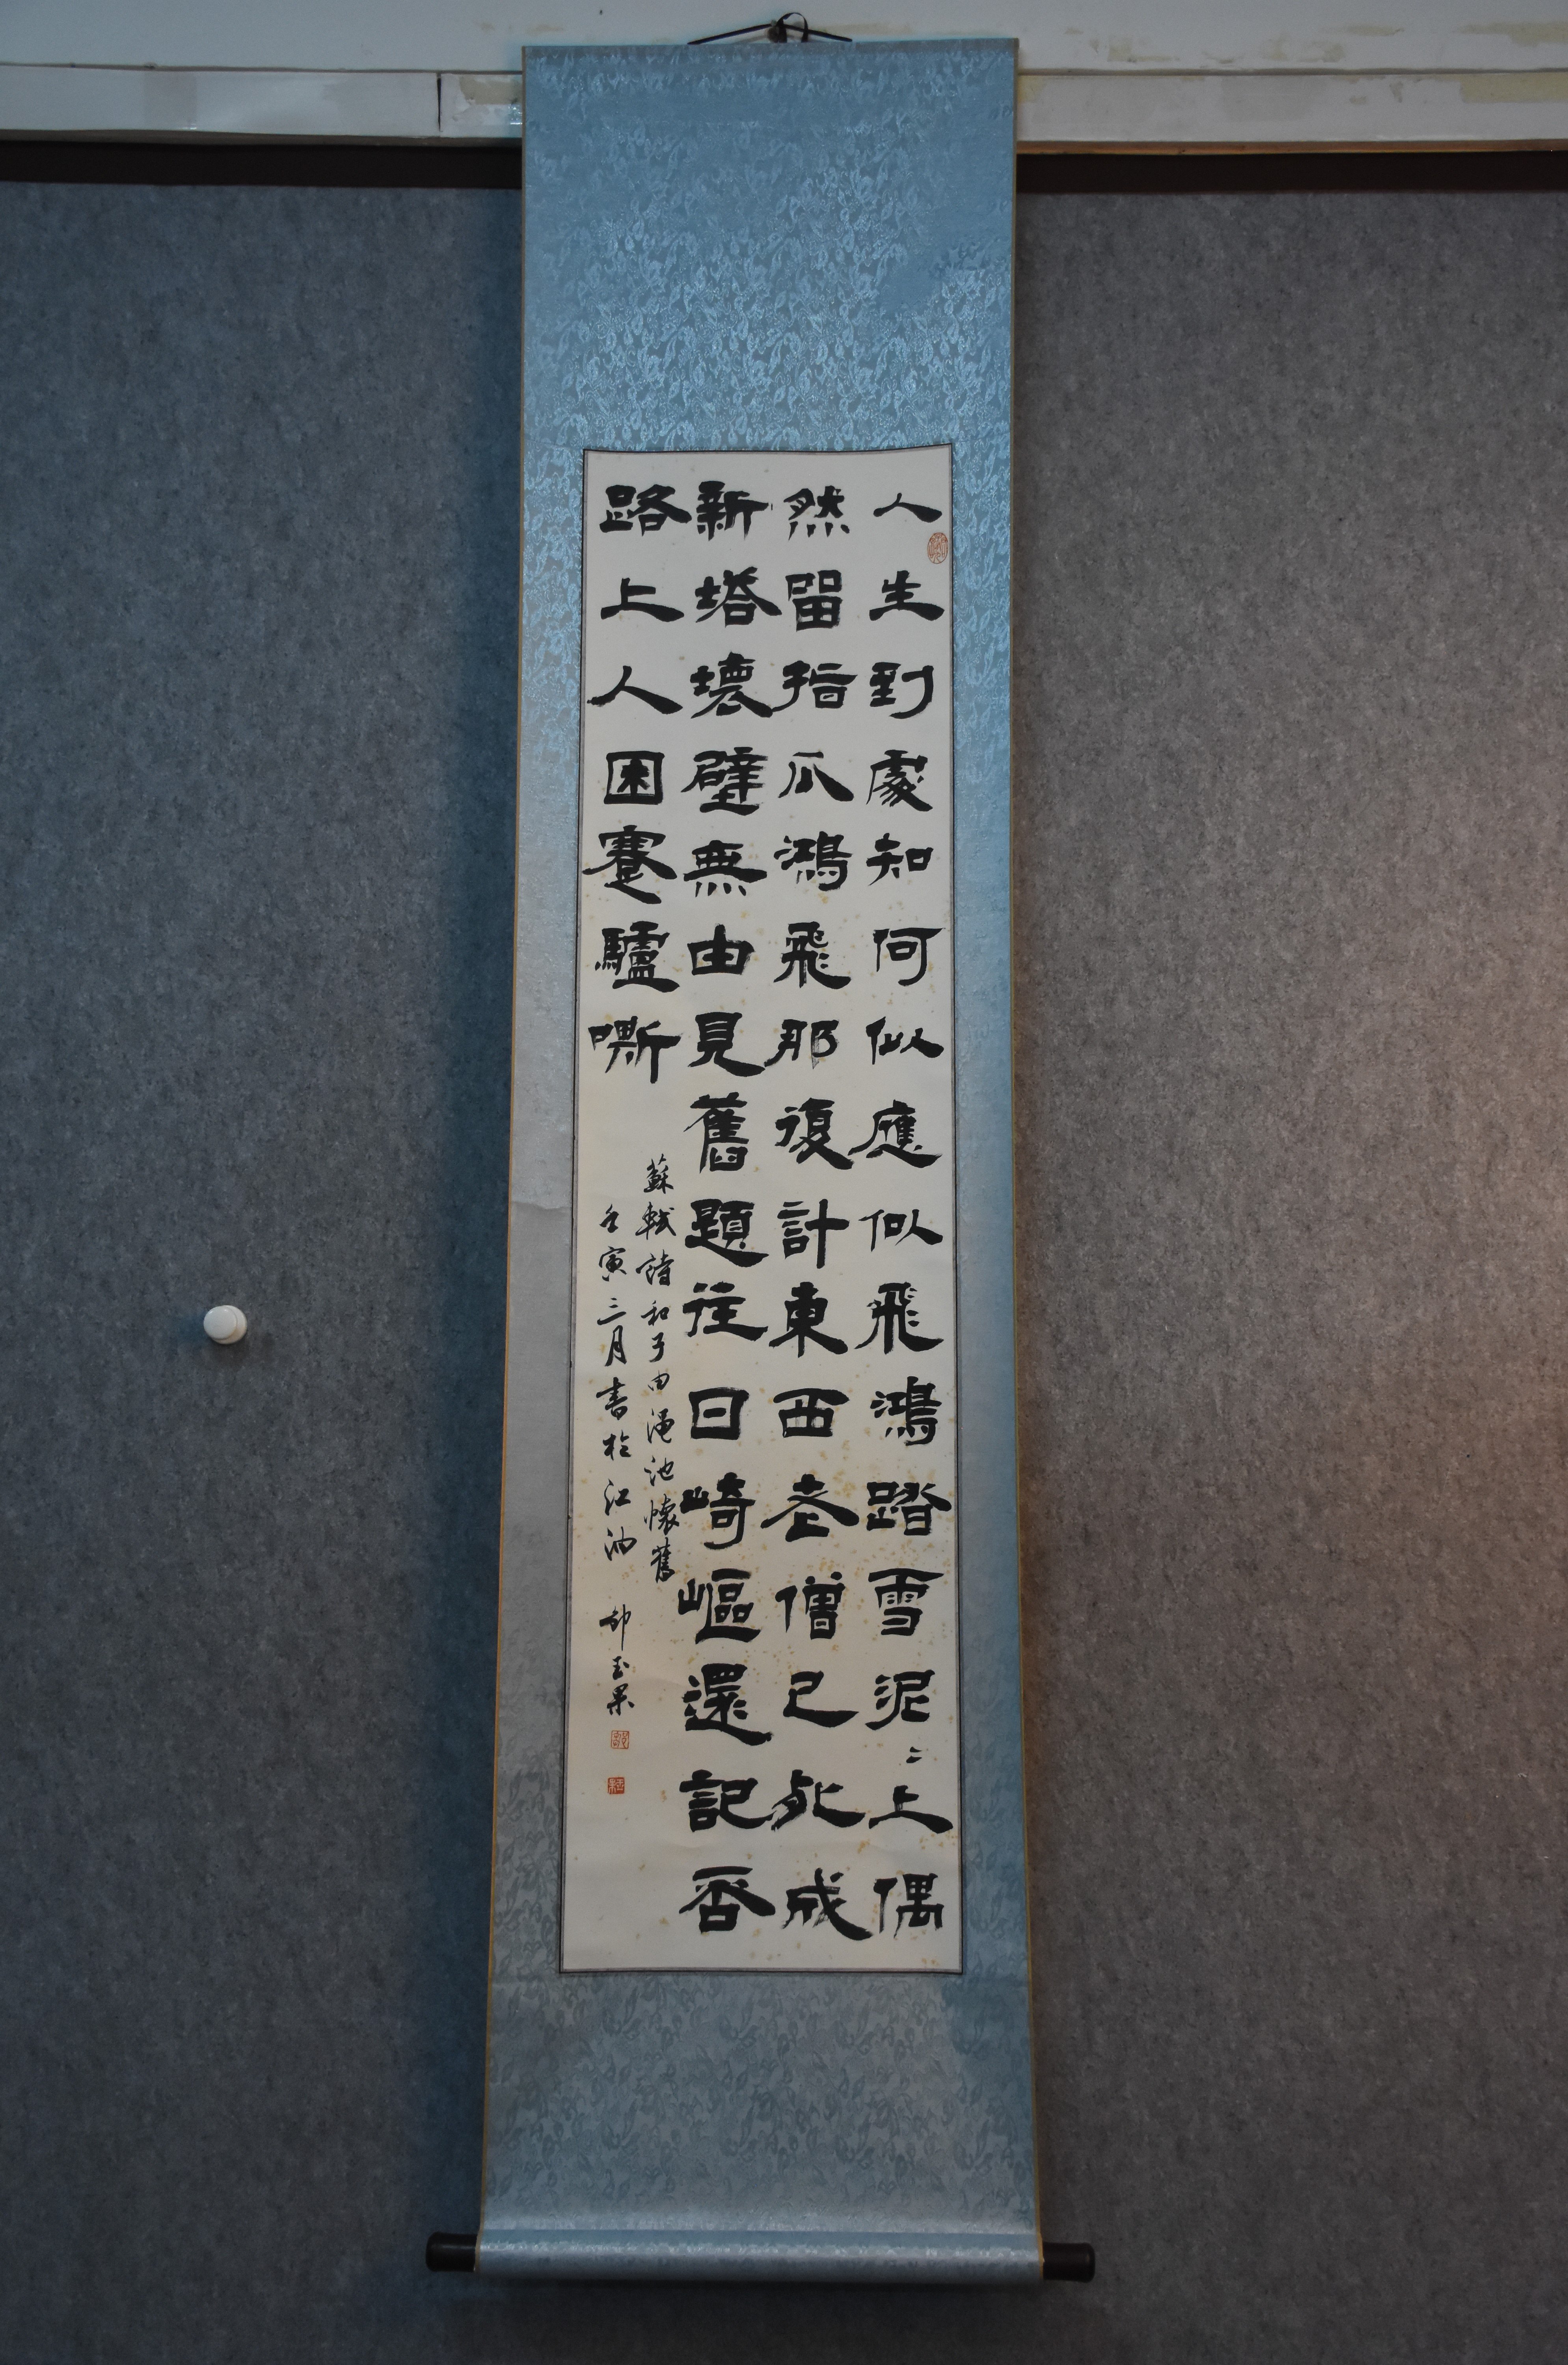 人生到處知何似應似飛鴻踏雪泥〻上偶
然留指爪鴻飛那復計東西老僧已死成
新塔壞壁無由見舊題往日崎嶇還記否
路上人困蹇驢嘶
蘇軾詩和子由澠池懷舊
壬寅三月書於江油 玉果